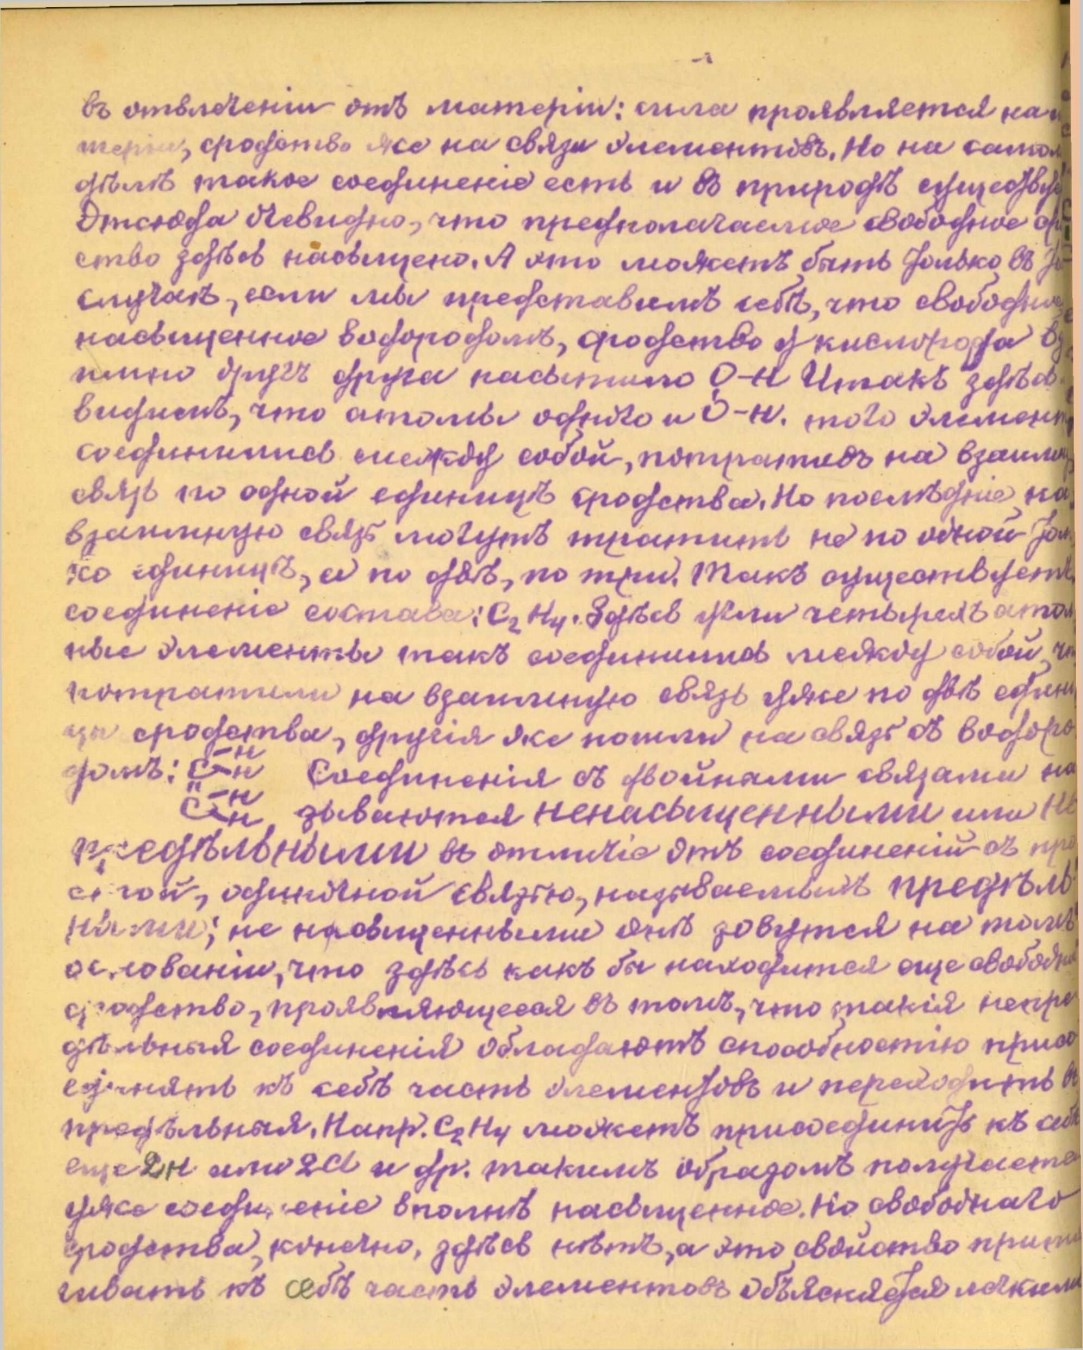 въ отвлеченіи отъ матеріи: сила проявляется на ма
теріи, сродство же на связи элементовъ. Но на самом
дѣлѣ такое соединеніе есть и въ природѣ существуе
Отсюда очевидно, что предполагаемое свободное ср
ство здѣсь насыщено. А это можетъ быть только въ то
случаѣ, если мы представимъ себѣ, что свободное
насыщенное водородомъ, сродство у кислорода вз
имно другъ друга насытило O-H Итакъ здѣсь
видимъ, что атомы одного и O-H. того элемент
соединились между собой, потративъ на взаимную
связь по одной единицѣ сродства. Но послѣдніе на
взаимную связь могутъ тратить не по одной толь
ко единицѣ, а по двѣ, по три. Такъ существуетъ
соединеніе состава: C₂H₄. Здѣсь угли четырехъ атом
ные элементы такъ соединились между собой, что
потратили на взаимную связь уже по двѣ едини
цы сродства, другія же пошли на связь съ водоро
домъ: C-H -H Соединенія съ двойными связами на
" C-H -H зываются ненасыщенными или не
предѣльными въ отличіе отъ соединеній съ про
стой, одиночной связью, называемыхъ предѣль
ными; не насыщенными онѣ зовутся на томъ
основаніи, что здѣсь какъ бы находится еще свободное
сродство, проявляющееся въ томъ, что такія непре
дѣльныя соединенія обладаютъ способностію присо
единять къ себѣ часть элементовъ и переходить въ
предѣльныя. Напр. C₂H₄ можетъ присоединить къ себѣ
еще 2H или 2Cl и др. такимъ образомъ получается
уже соединеніе вполнѣ насыщенное. Но свободнаго
сродства, конечно, здѣсь нѣтъ, а это свойство притя
гивать къ себѣ часть элементовъ объясняется